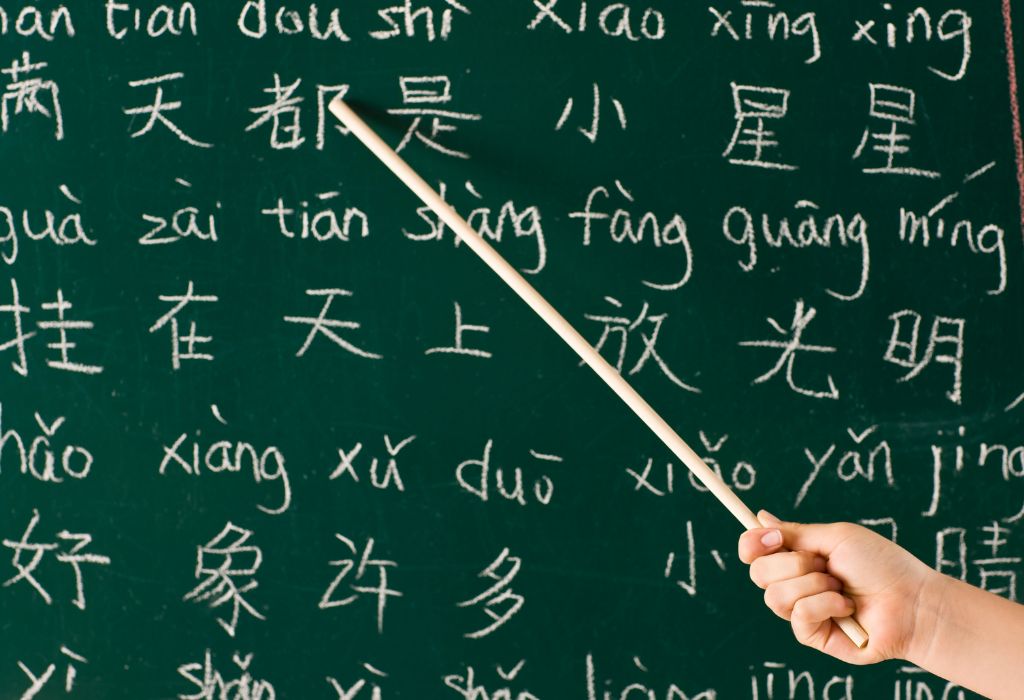 tian dou shì xiao xīng xing
满 天 都 是 小 星 星
guà zài tiān shàng fàng guāng míng
挂 在 天 上 放 光 明
hǎo xiàng xǔ duō xiǎo yǎn jing
好 象 许 多 小 睛
yì shǎn yì shǎn liàng jīng jīng